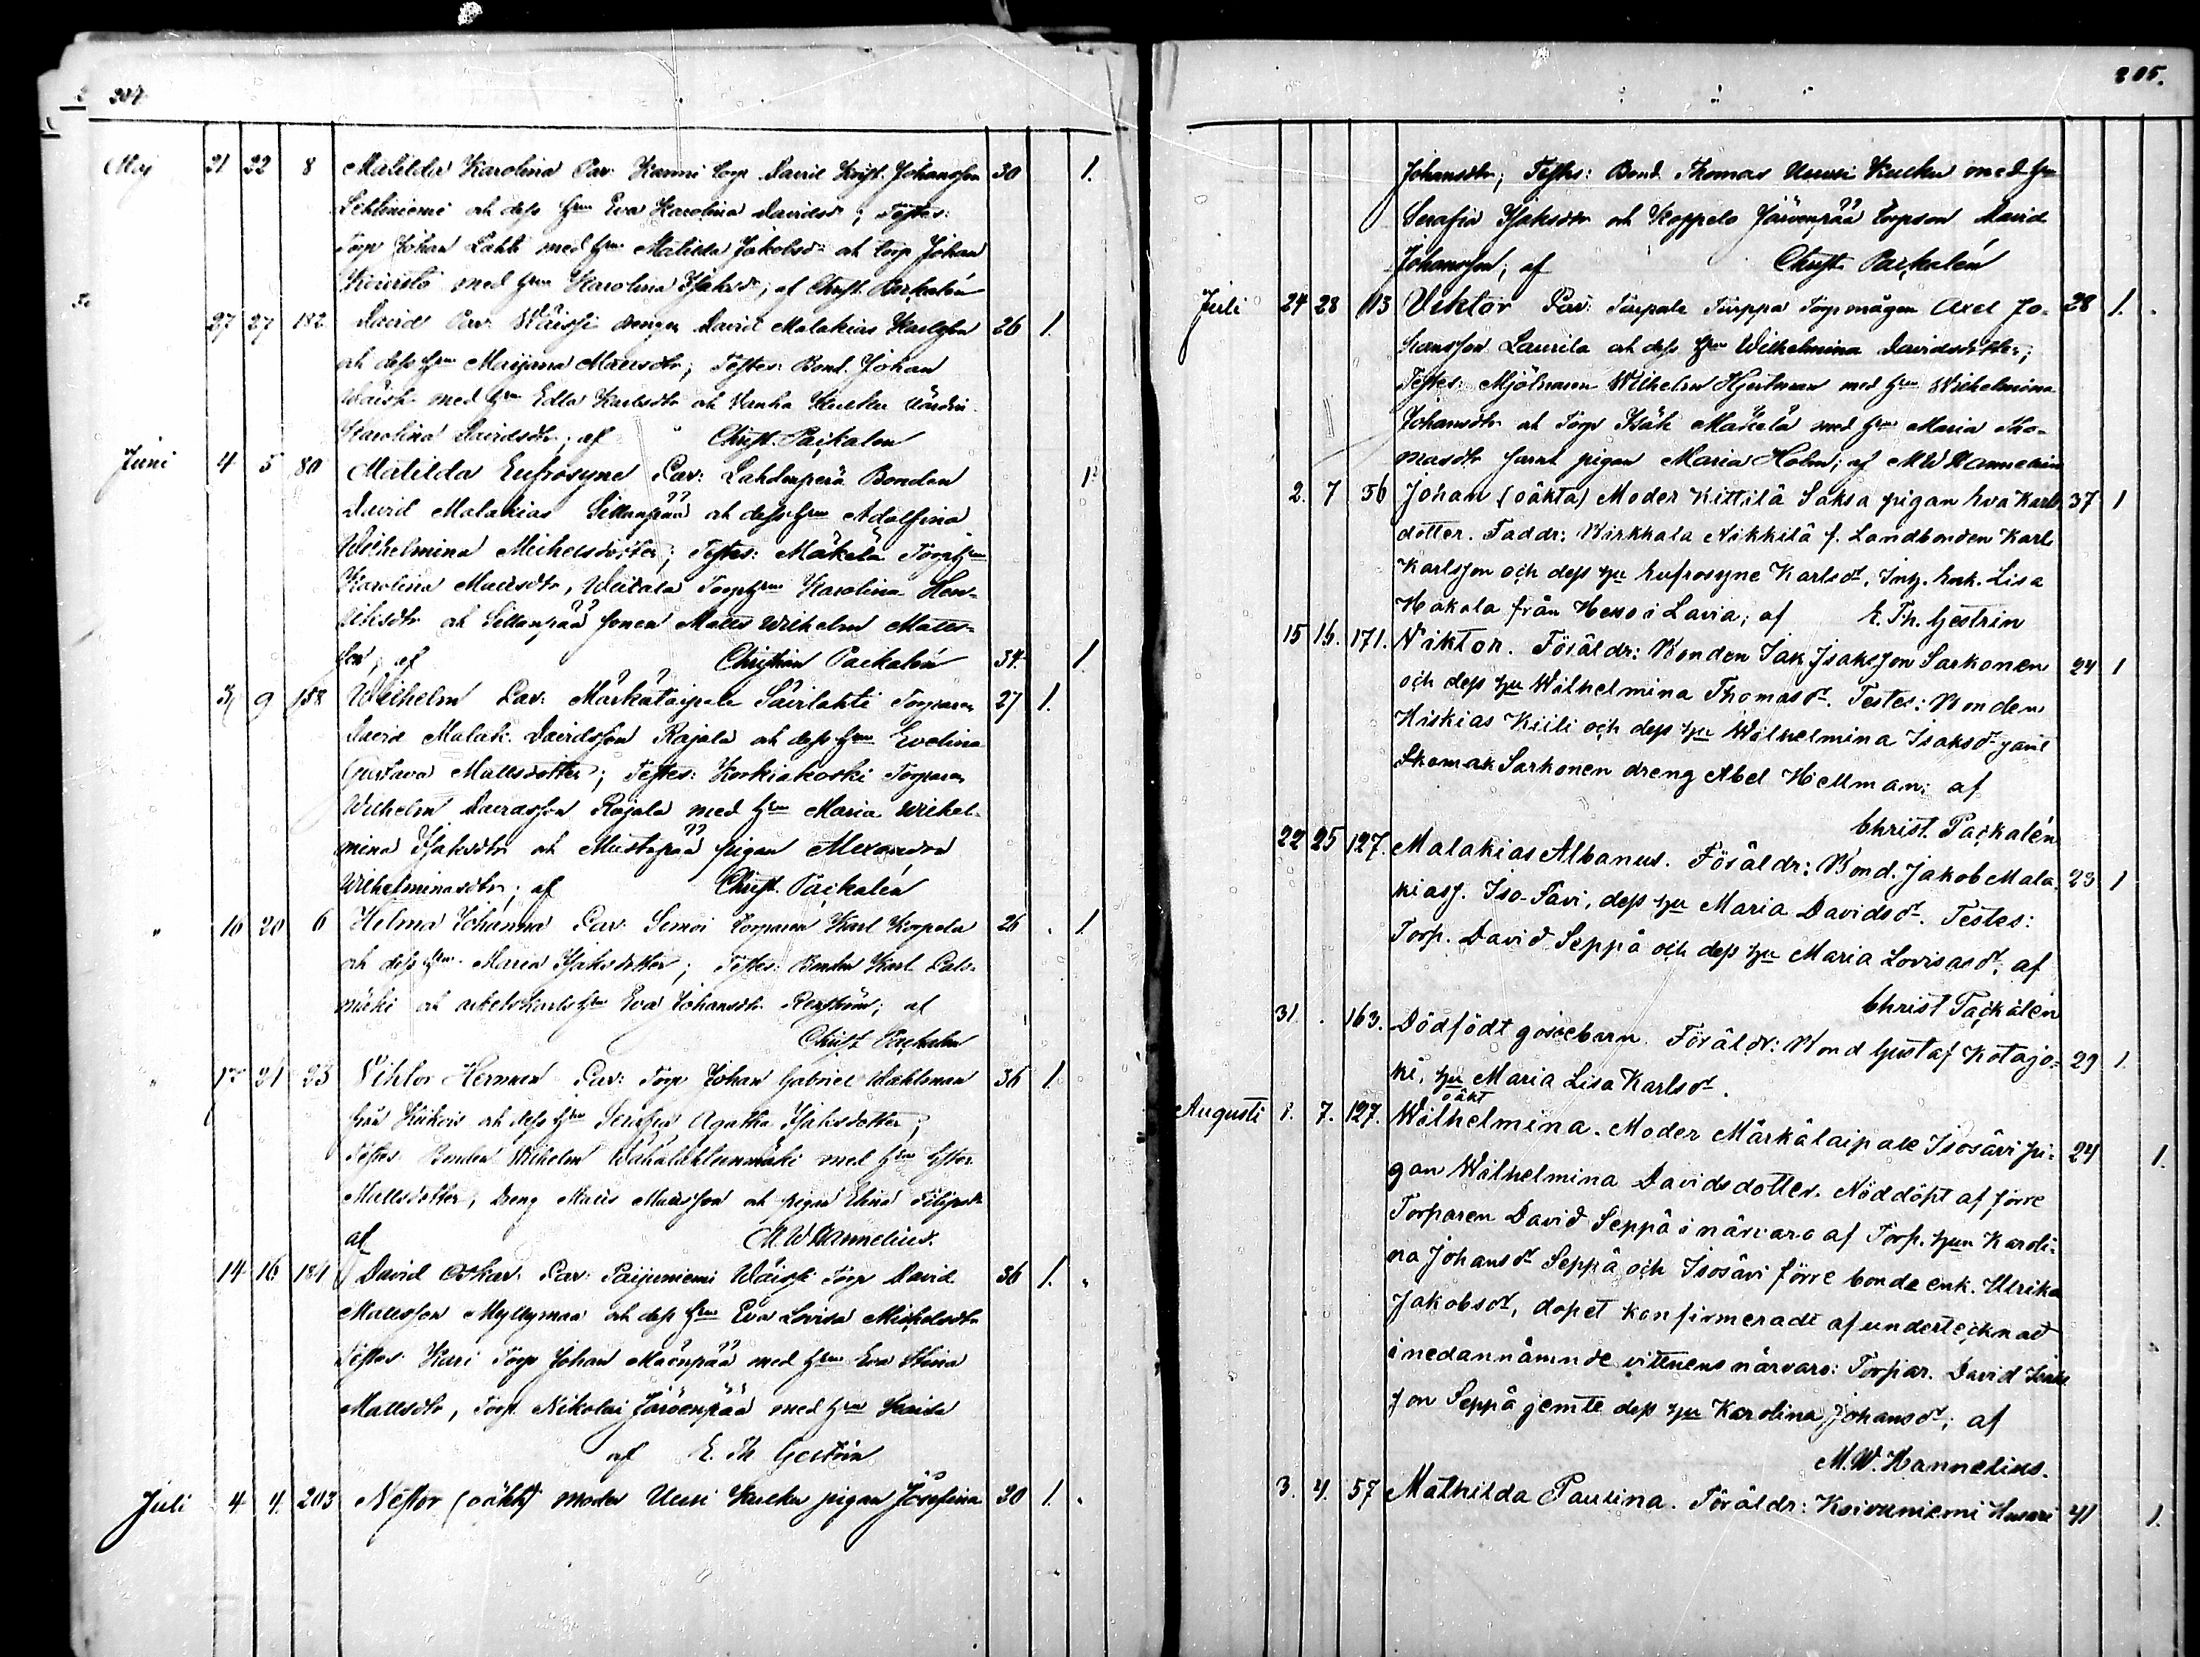 204
Maj 21 22 8 Matilda Karolina Par: Karmi torp. David Krist. Johansson 30 1.
Lehtiniemi och dess hru Eva Karolina Davidsdr; Testes:
Torp Johan Lahti med hru Matilda Jakobsdr och torp Johan
med hru Karolina Isaksdr; af Christ. Packalén
27 27 182 David Par: Wäissi drengen David Malakias Karlsson 26 1.
och dess hru Marjana Mattsdtr; Testes: Bond. Johan
Wäissi med hru Edla Karlsdtr och Wanha Kucku
Karolina Davidsdtr; af Christ. Packalén
Juni 4 5 80 Matilda Eufrosyne Par: Lahdenperä Bonden 1.
David Malakias Sillanpää och dess hru Adolfina
Wilhelmina Michelsdotter; Testes: Mäkelä Torphru
Karolina Mattsdtr, Torphru Karolina Hen-
riksdtr och Sillanpää sonen Matts Wilhelm Matts-
son; af Christian Packalén 34. 1
9 158 Wilhelm Par: Märkätaipale Säirlahti Torparen 27 1.
David Malak. Davidsson Rajala och dess hru Evelina
Gustava Mattsdotter; Testes: Korkiakoski Torparen
Wilhelm Davidsson Rajala med hru Maria Wilhel-
mina Isaksdtr och Mustapää pigan Alexandra
Wilhelminasdtr; af Christ. Packalén
" 16 20 6 Helma Johanna Par: Torparen Karl Korpela 26 . 1
och dess hru Maria Isaksdotter; Testes: Bonden Karl
mäki och Eva Johansdtr af
Christ Packalén
" 21 23 Viktor Herman Par: Torp Johan Gabriel Wahlman 36 1.
från och dess hru Serafia Agatha Isaksdotter;
Testes Bonden Wilhelm med hru Ester
Mattsdotter, Dreng Matts Mattsson och pigan Elina Filipsdr
af M W Hannelius.
14 16 181 David Oskar. Par: Paijuniemi Wäissi Torp David 36 1. "
Mattsson Myllymaa och dess hru Eva Lovisa Michelsdtr
Testes: Kari Torp Johan Mäenpää med hru Eva Stina
Mattsdtr, Torp. Nikolai Järvenpää med hru Kaisa
af E. Th Gestrin
Juli 4 4. 203 Nestor (oäkta) moder Uusi Kucku pigan Josefina 30 1. "
205.
Johansdtr; Testes: Bond. Thomas Uusi Kucku med hru
Serafia Isaksdtr och Koppelo Järvenpää torpson David
Johansson; af Christ. Packalén
Juli 24 28 113 Viktor Par: Turppa Torpmågen Axel Jo- 28 1. .
hansson Laurila och dess hru Wilhelmina Davidsdotter;
Testes: Mjölnaren Wilhelm Hjertman med hru Wilhelmina
Johansdtr och Torp Isak Mäkelä med hru Maria Tho-
masdtr samt pigan Maria Holm; af M W Hannelius
2. 7 56 Johan (oäkta) Moder Kittilä Saksa pigan Eva Karls 37 1
dotter. Faddr: Kirkkala Nikkilä f. Landbonden Karl
Karlsson och dess hru Eufrosyne Karlsdr, Inh. Enk. Lisa
Hakala från Heno i Lavia; af E. Th. Gestrin
15 16. 171. Wiktor. Föräldr: Bonden Isak Isaksson Sarkonen 24 1
och dess hru Wilhelmina Thomasdr. Testes: Bonden
Hiskias Kiili och dess hru Wilhelmina Isaksdr samt
Skomak Sarkonen dreng Abel Hellman; af
Christ. Packalén
22 25 127. Malakias Albanus. Föräldr: Bond. Jakob Mala- 23 1
kiass. Iso-Sävi, dess hru Maria Davidsdr. Testes:
Torp. David Seppä och dess hru Maria Lovisasdr; af
Christ Packalén
31 . 163. Dödfödt gossebarn. Föräldr: Bond Gustaf Kotajo- 29 1.
ki, hru Maria Lisa Karlsdr.
oäkt
Augusti 1. 7. 127. Wilhelmina. Moder Märkätaipale Isosävi pi- 24 1.
gan Wilhelmina Davidsdotter. Nöddöpt af förre
Torparen David Seppä i närvaro af Torp. hrun Karoli-
na Johansdr Seppä och Isosävi förre bonde enk. Ulrika
Jakobsdr, dopet konfirmeradt af undertecknad
i nedannämnde vittnens närvaro: Torpar. David Isaks
son Seppä jemte dess hru Karolina Johansdr; af
M. W. Hannelius.
3. 4. 57 Mathilda Paulina. Föräldr: Koivuniemi Husari 41 1.